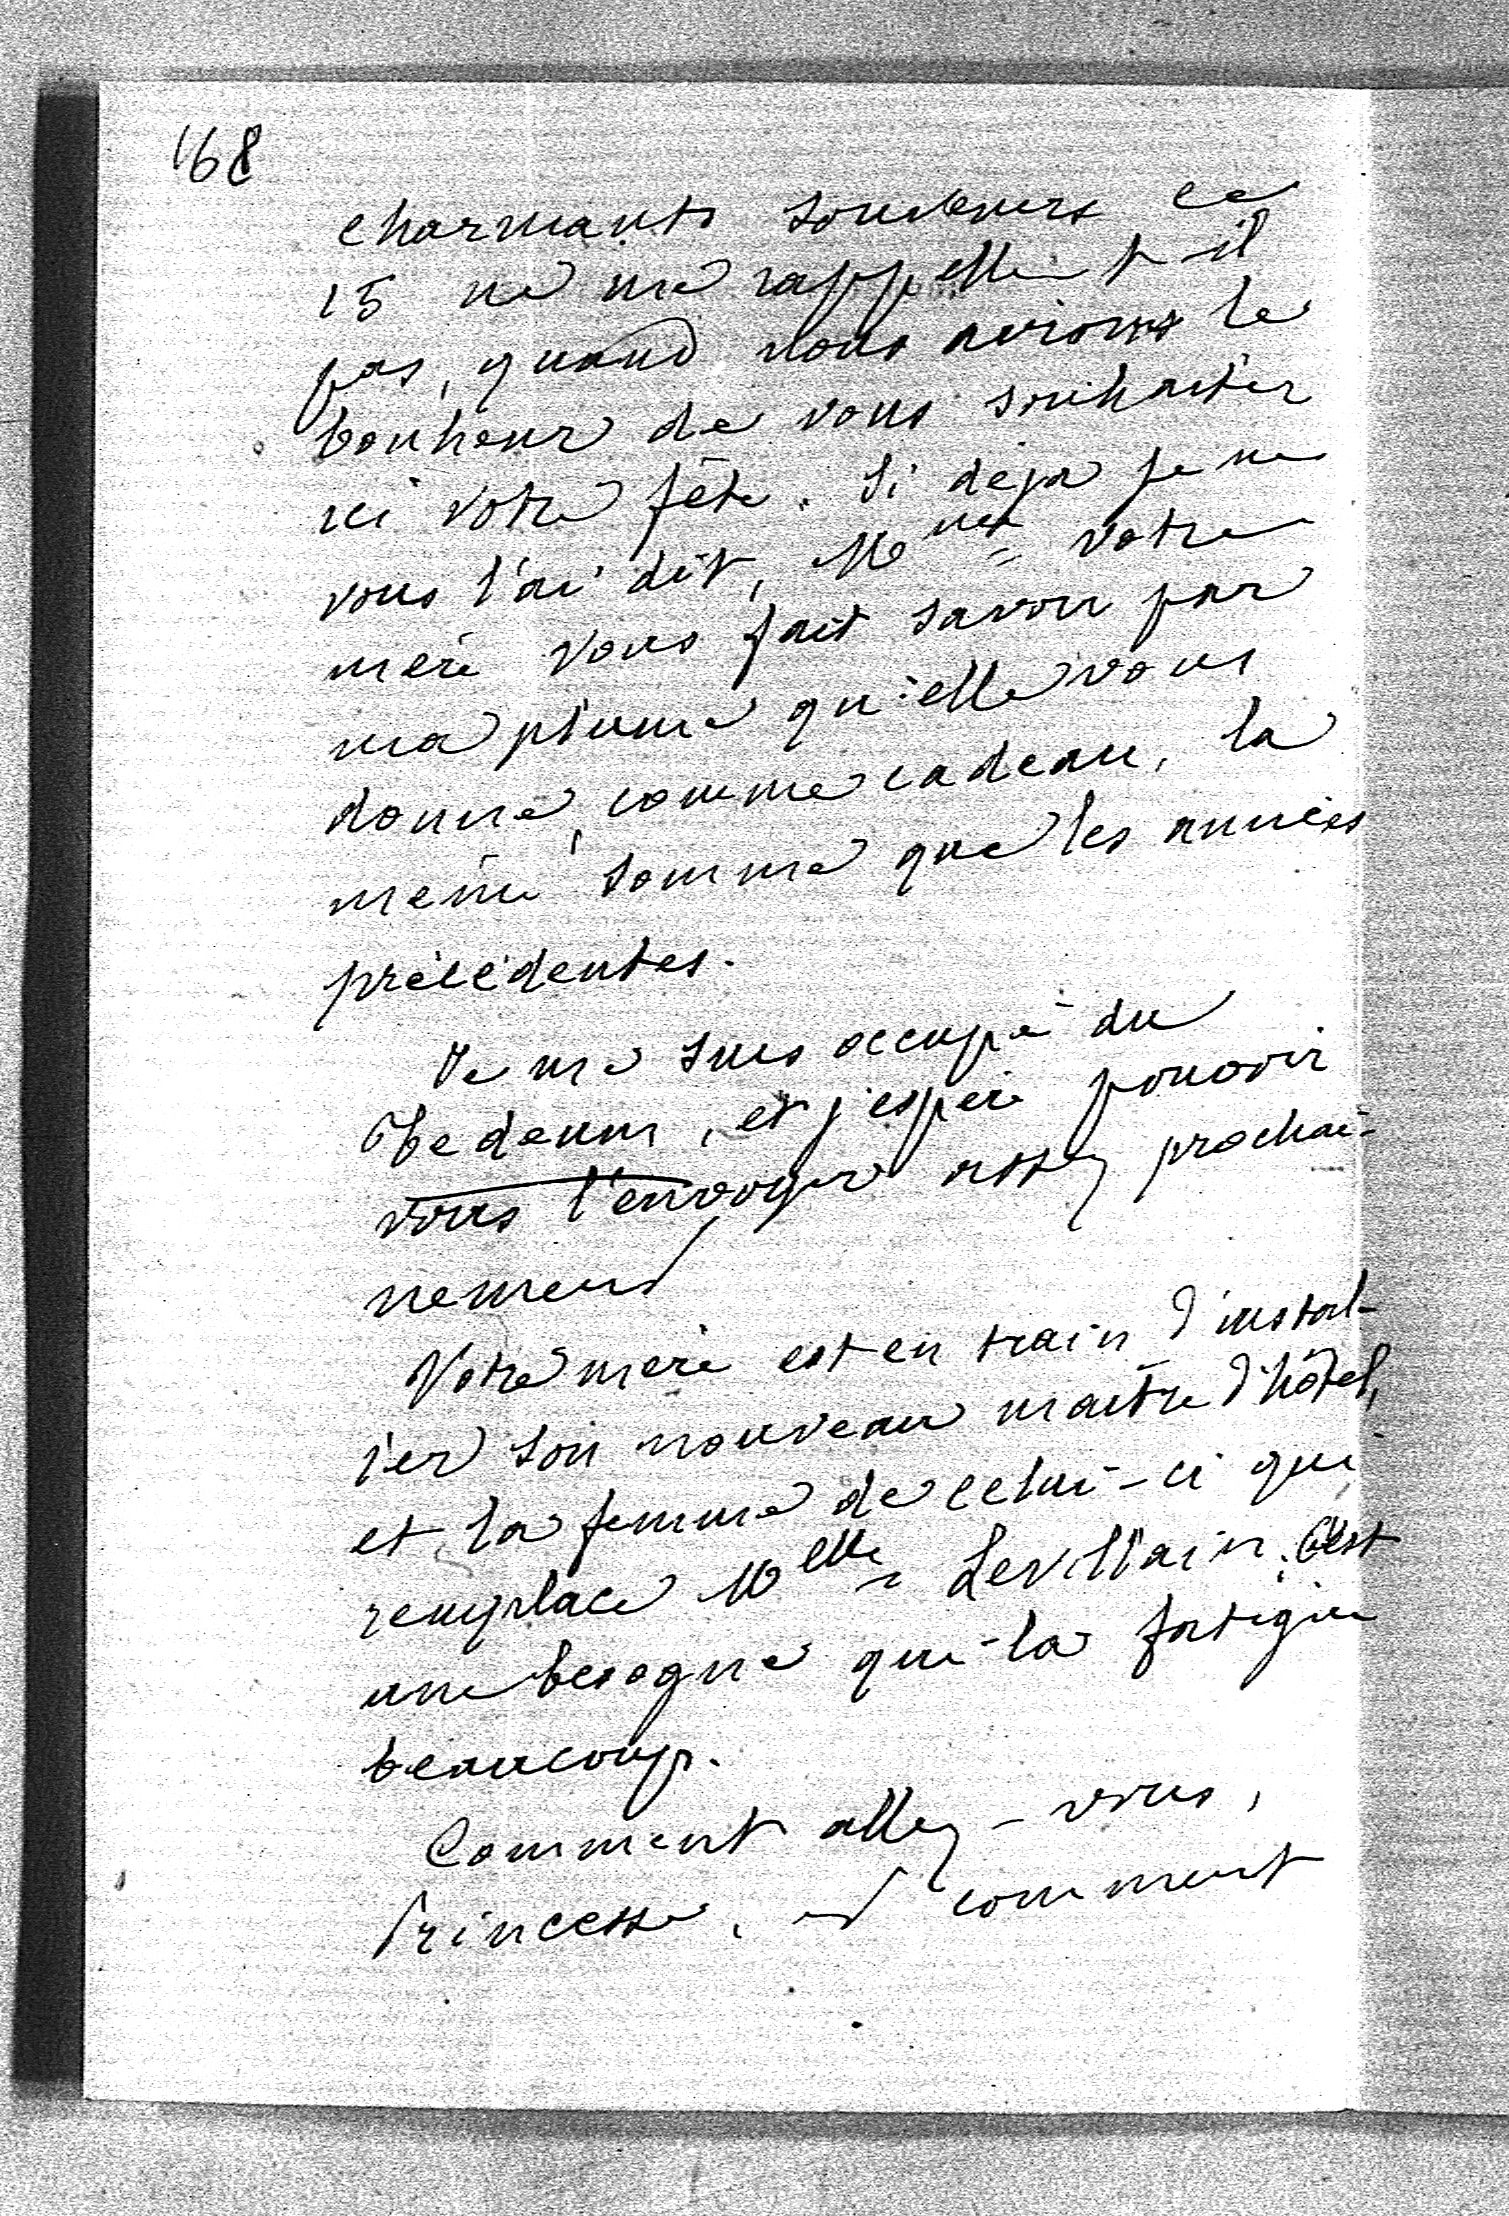 168
charmants souvenirs ce
15 ne me rappelle-t-il
pas, quand nous avions le
bonheur de vous souhaiter
ici votre fête. Si déjà je ne
vous l'ai dit, Mme votre
mère vous fait savoir par
ma plume qu'elle vous
donne, comme cadeau, la
même somme que les années
précédentes.
Je me suis occupé du
Te deum, et j'espère pouvoir
vous l'envoyer assez prochai-
nement
Votre mère est en train d'instal-
ler son nouveau maître d'hôtel,
et la femme de celui-ci qui
remplace Melle Levillain. C'est
une besogne qui la fatigue
beaucoup.
Comment allez-vous,
Princesse, et comment